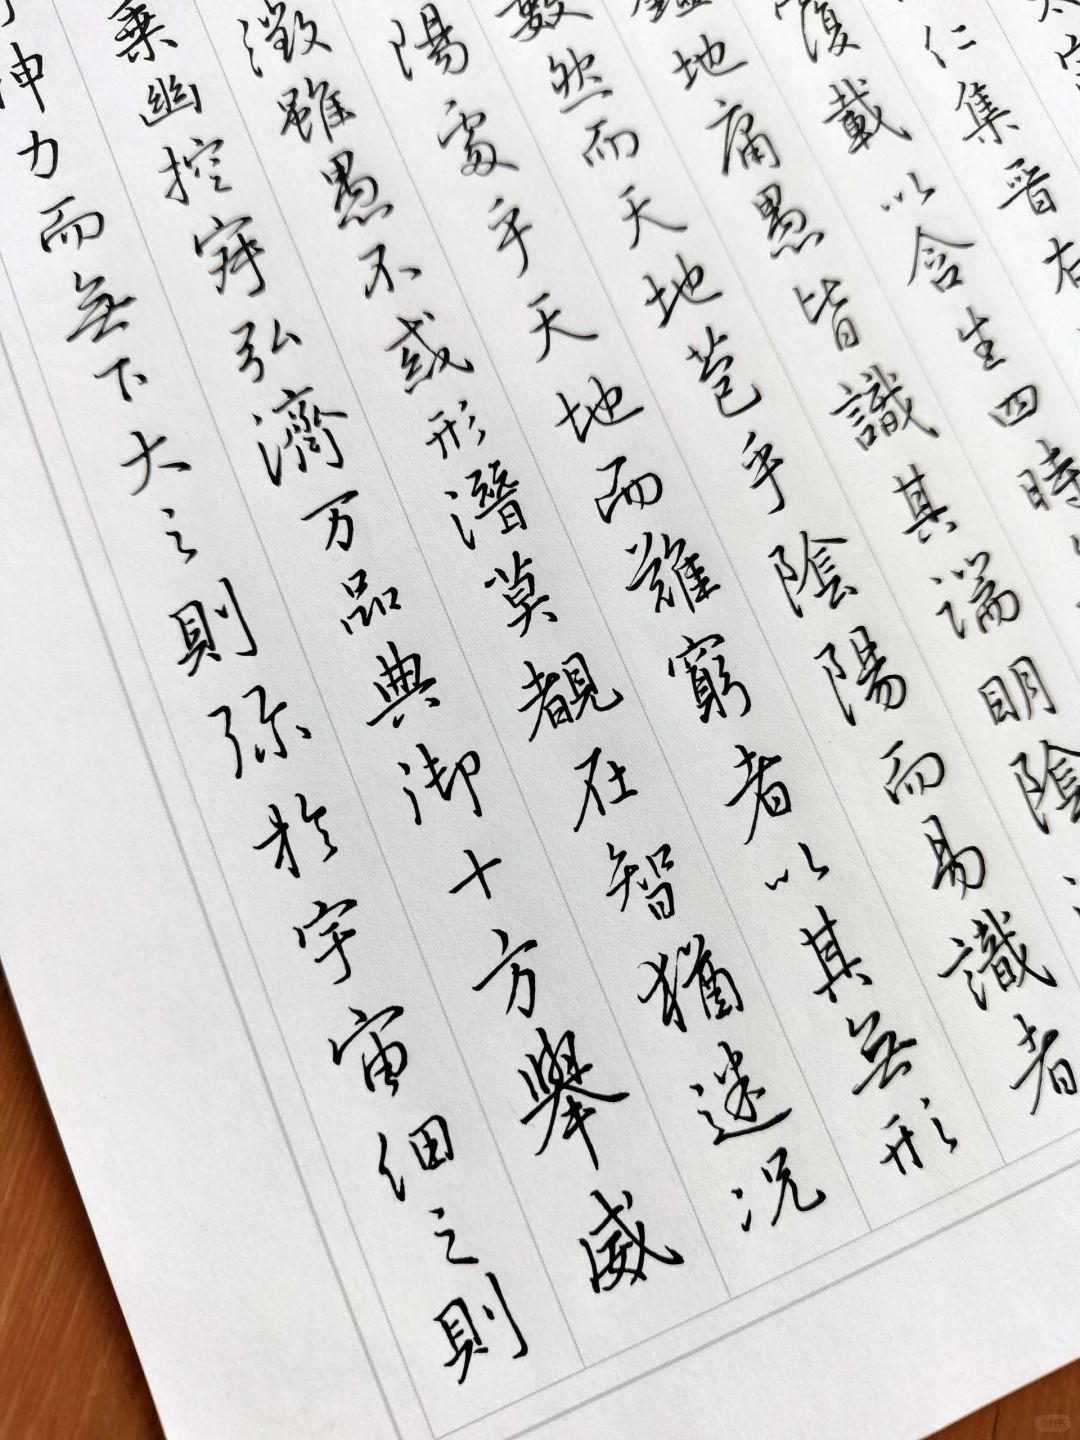 太宗
仁集晉右
覆載以含生四時
地庸愚皆識其端明陰
數然而天地苞乎陰陽而易識者
陽處乎天地而難窮者以其無形
徵雖愚不惑形潛莫覩在智猶迷況
乘幽控寂弘濟万品典御十方舉威
神力而無下大之則弥於宇宙細之則